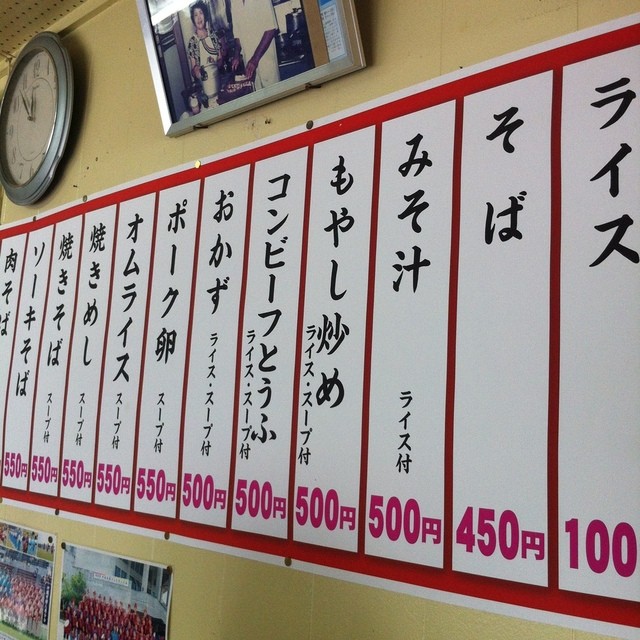 ライス
100
そば
450円
みそ汁
ライス付
500円
もやし炒め
ライス・スープ付
500円
コンビーフとうふ
ライス・スープ付
500円
おかず
ライス・スープ付
500円
ポーク卵
スープ付
550円
オムライス
スープ付
550円
焼きめし
スープ付
550円
焼きそば
スープ付
550円
ソーキそば
550円
肉そば
550円